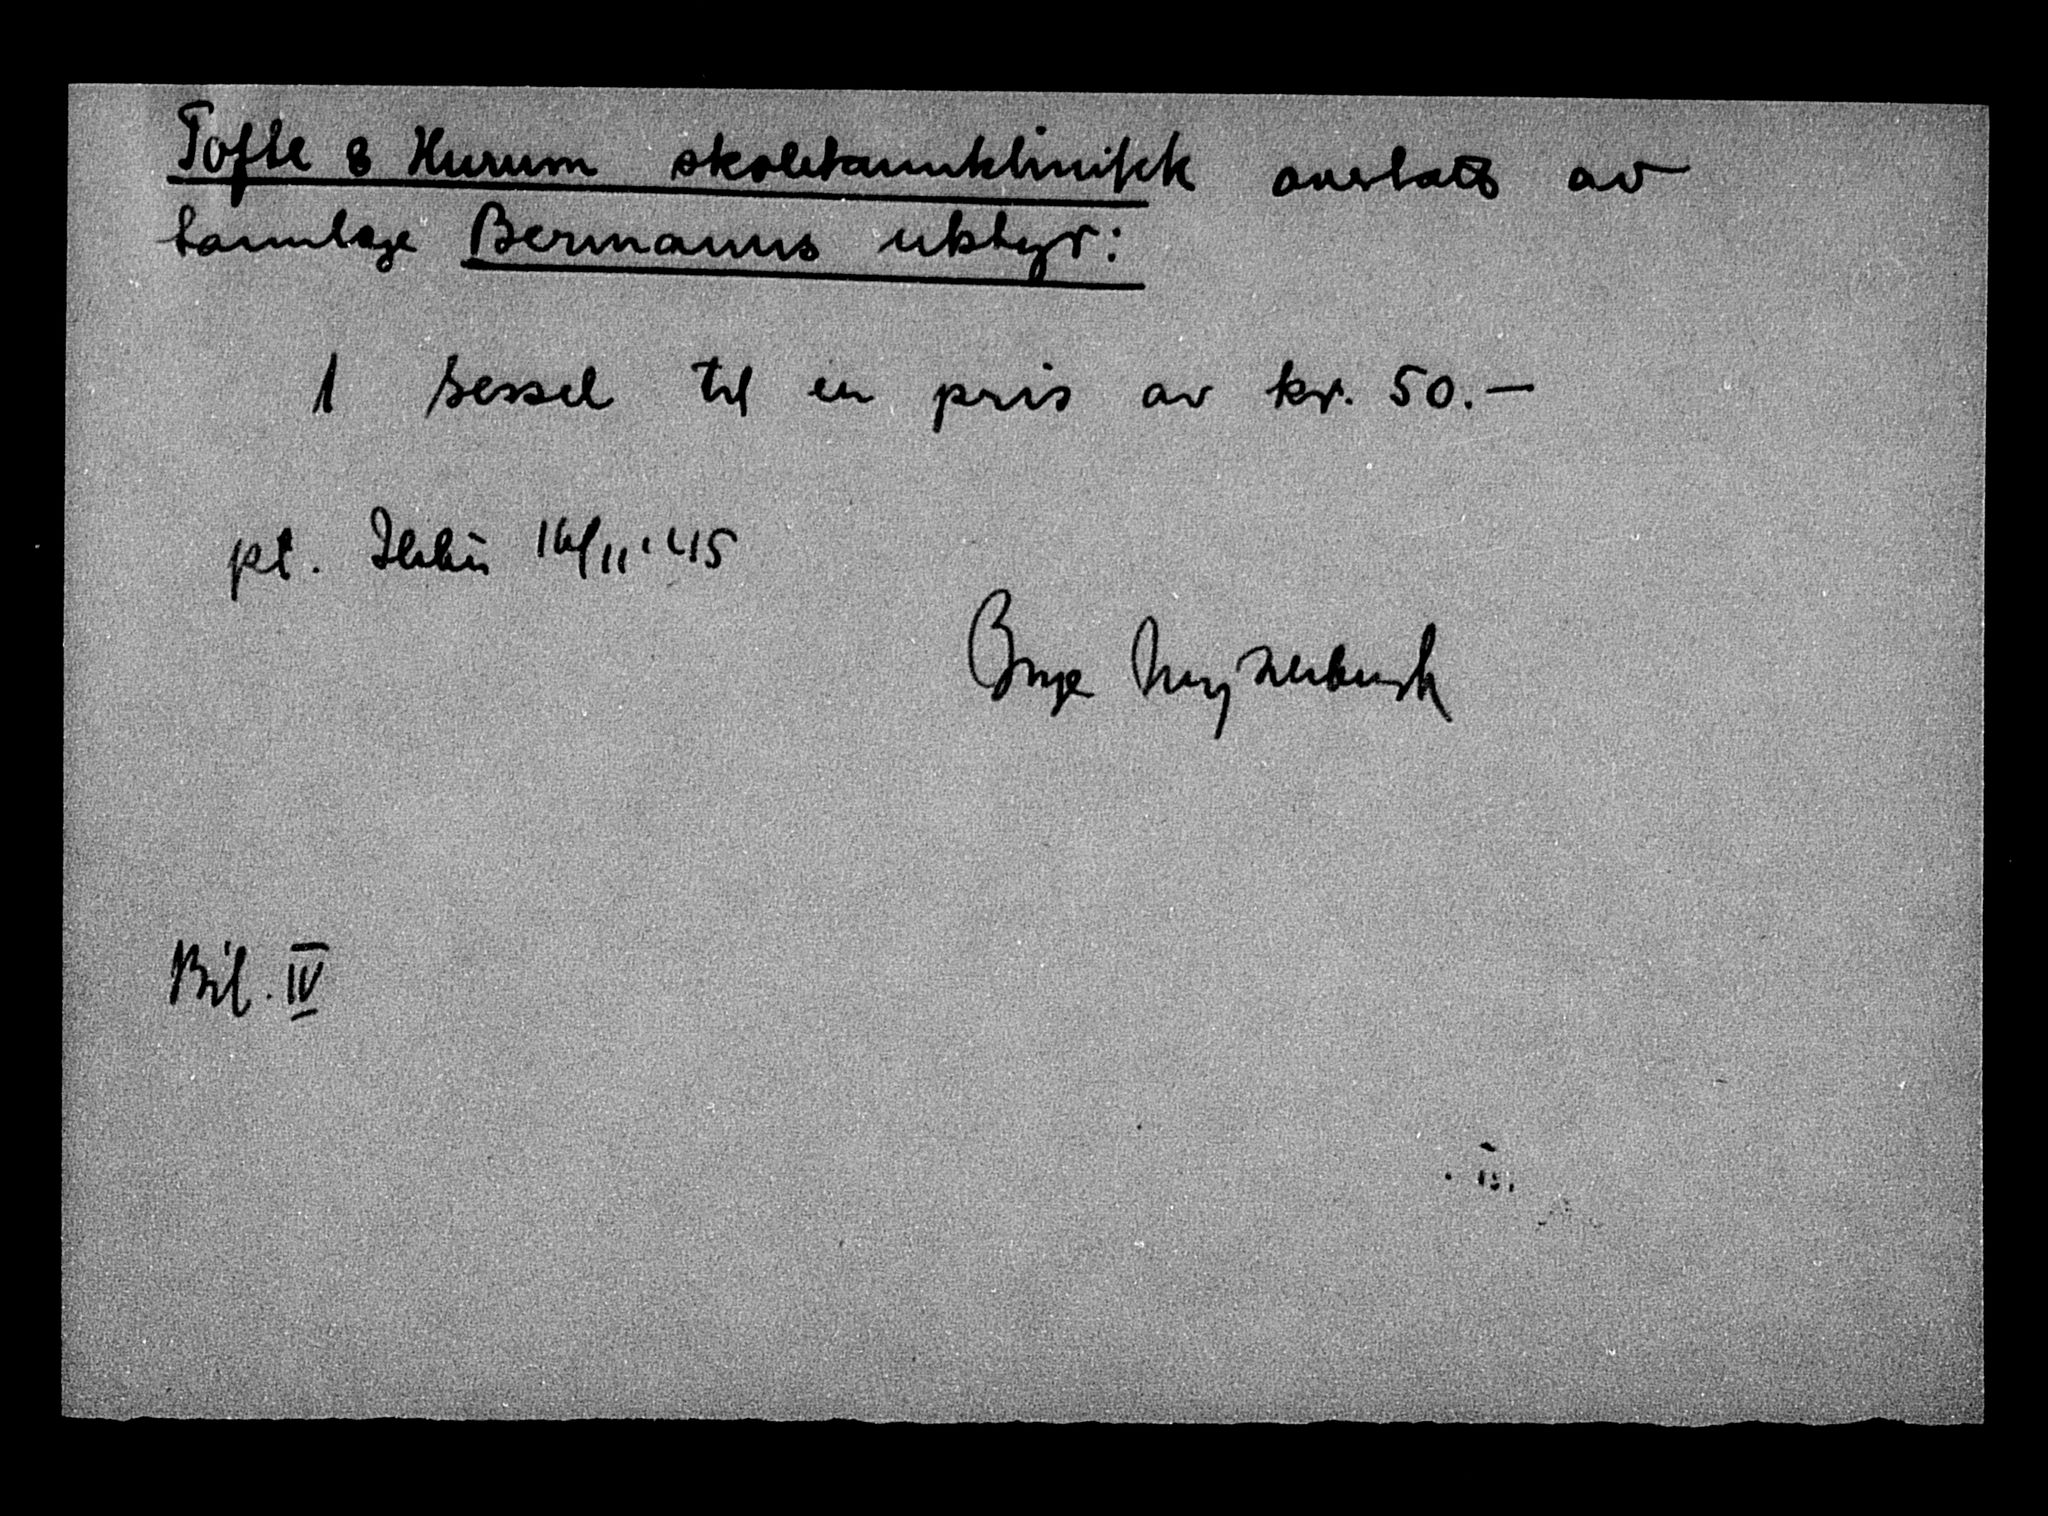 Tofte & Hurum skoletannklinikk overlatt av
tannlege Bermanns utstyr:
1 sessel til en pris av kr. 50.—
pt. Ilebu 16/11.'45
Bil. IV